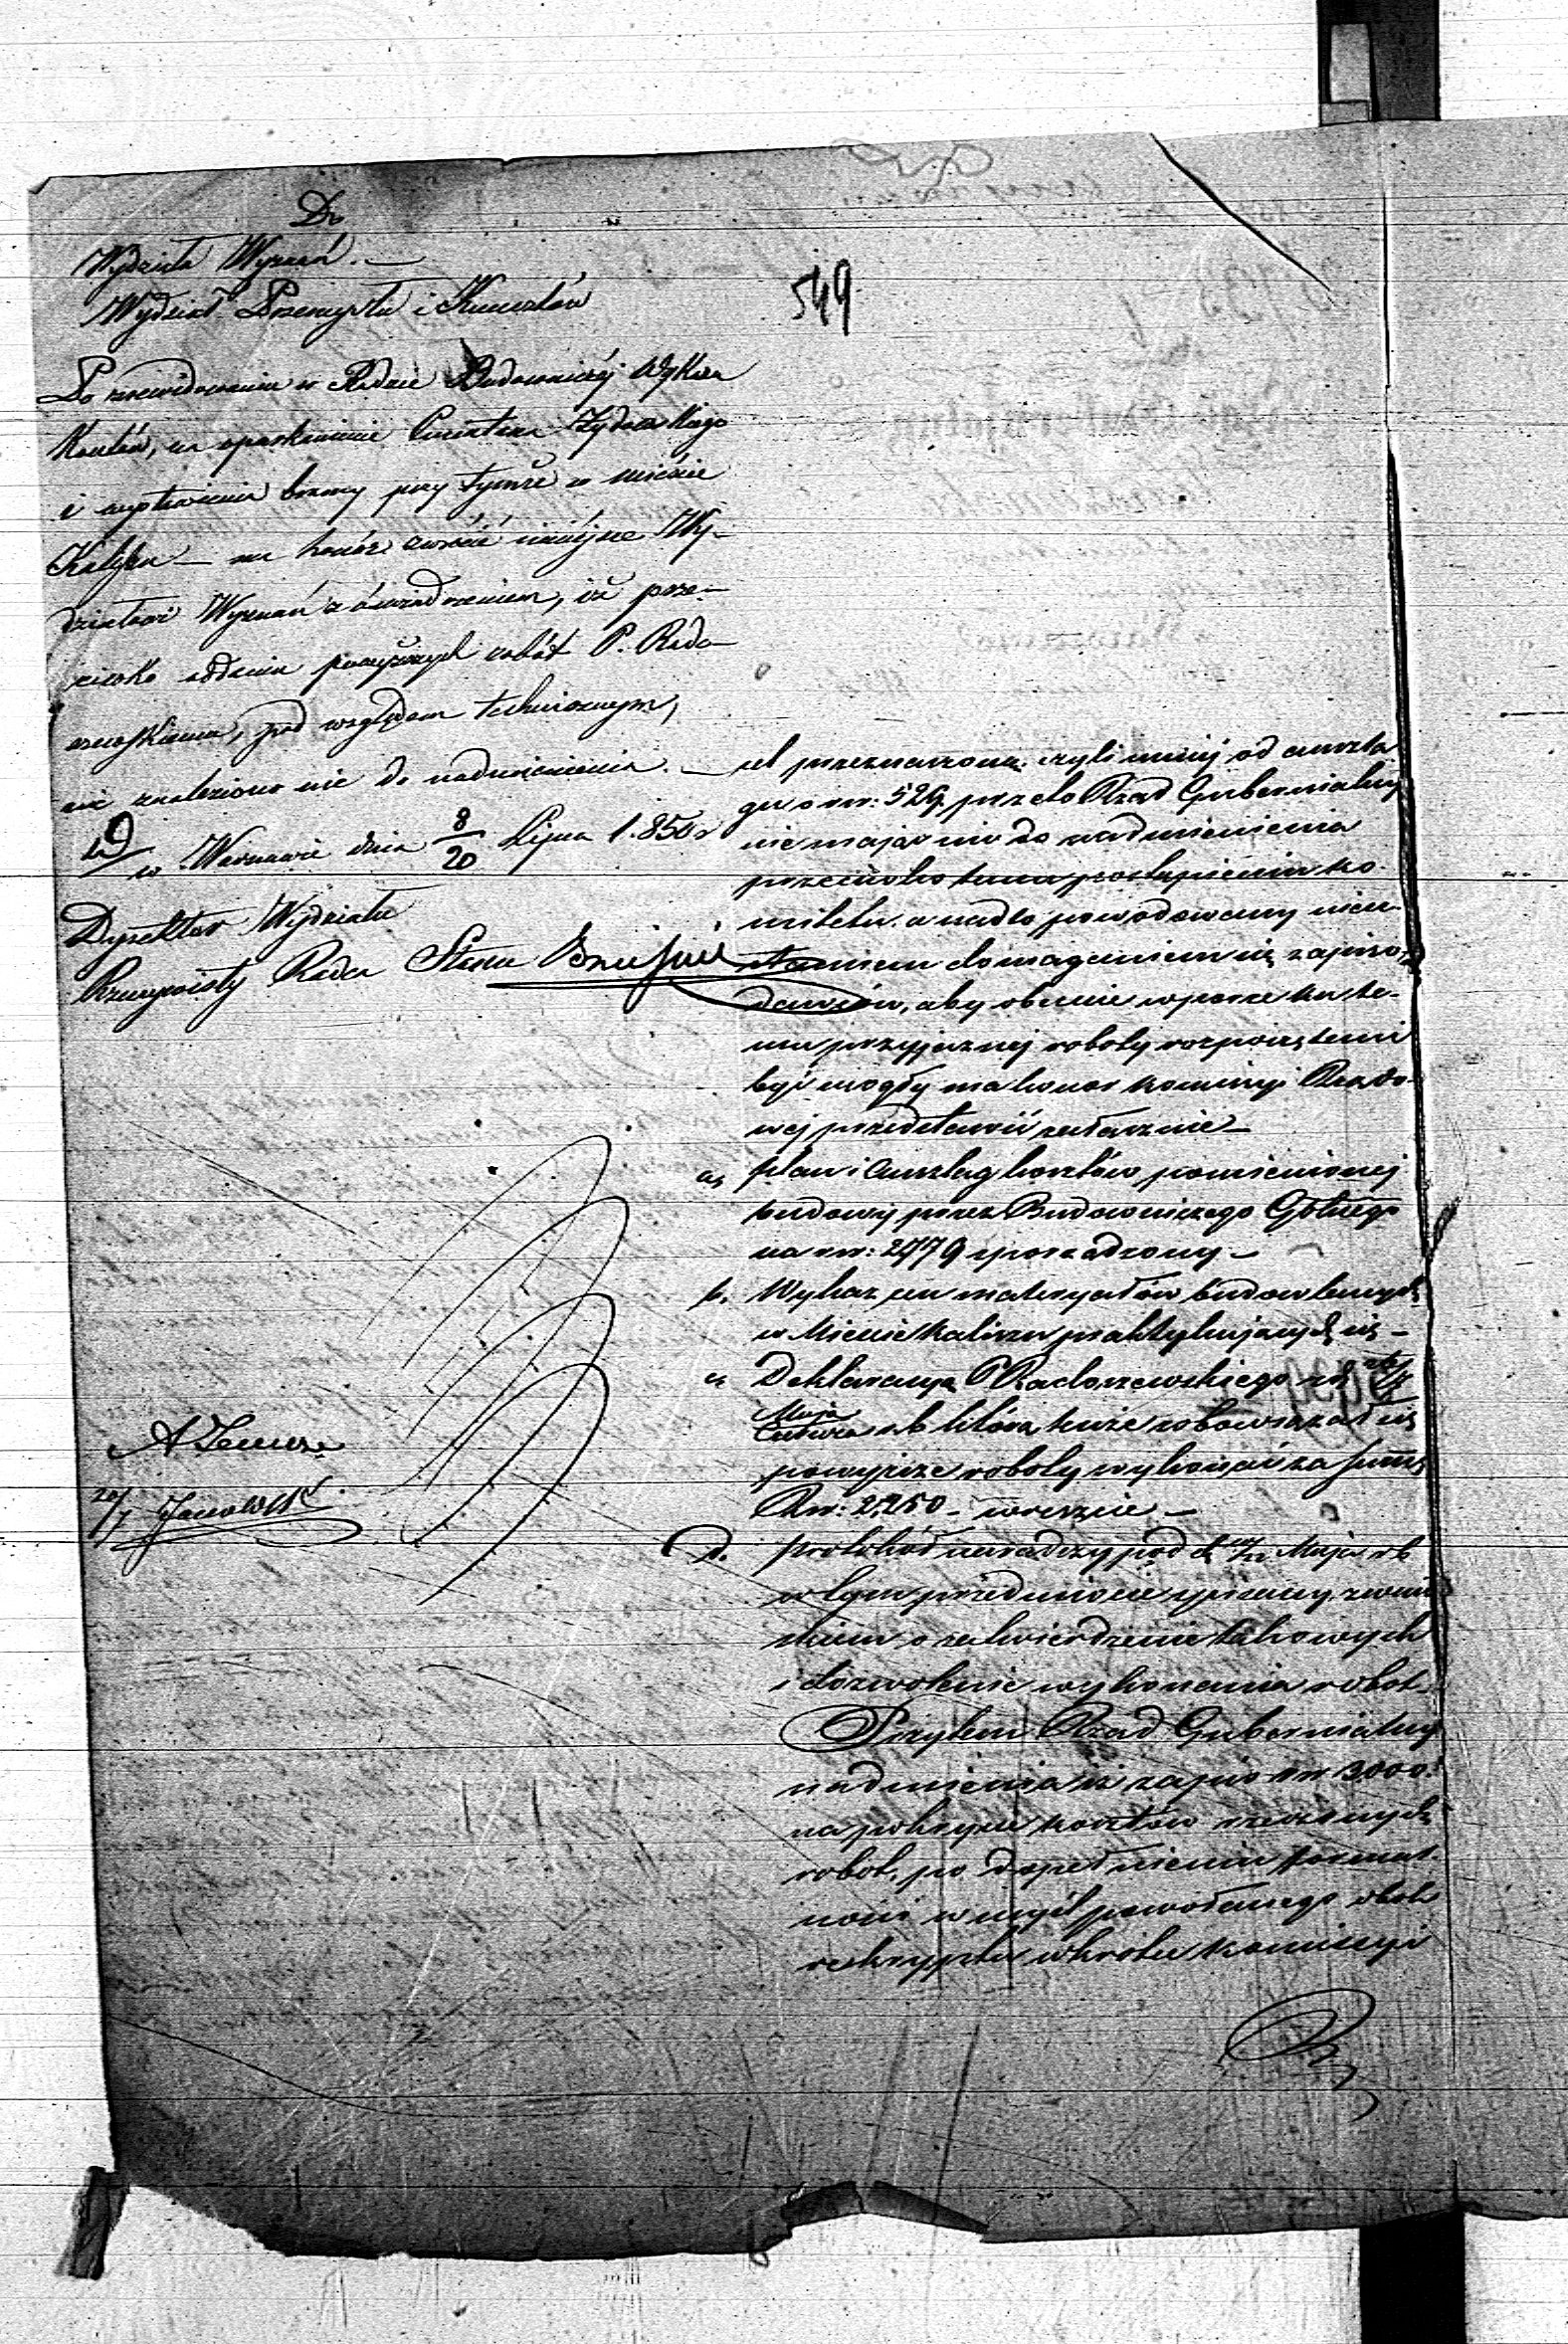 Do
Wydziału Wyznań. —
Wydział Przemysłu i Kunsztów
549
Po zrewidowaniu w Radzie Budowniczej Wykazu
Kosztów, na oparkanienie Cmentarza Żydowskiego
i wystawienie bramy przy tymże w mieście
Kaliszu — ma honor zwrócić niniejsze Wy-
działowi Wyznań z oświadczeniem, iż prze-
ciwko oddaniu powyższych robót P. Rado-
szewskiemu, pod względem technicznym,
nie znaleziono nic do nadmienienia. —
w Warszawie dnia 8/20 Lipca 1.850 r
Dyrektor Wydziału
Rzeczywisty Radca Stanu
20/7 Janowski
cel przeznaczona czyli mniej od anszla
gu o rsr: 529, przeto Rząd Gubernialny
nie mając nic do nadmienienia
przeciwko temu postąpieniu ko-
mitetu, a nadto powodowany nieu-
stannem domaganiem się zapiso-
dawców, aby obecnie w porze ku te-
mu przyjaznej roboty rozpoczętemi
być mogły ma honor Kommisyi Rządo-
wej przedstawić załącznie —
a, plan i Anszlag kosztów pomienionej
budowy przez Budowniczego Gblnego
na rsr: 2779 sporządzony —
b, Wykaz cen materyałów budowlanych
w Mieście Kaliszu praktykujących się —
c, Deklaracyą P. Radoszewskiego z d
Maja
Czerwca r b którą tenże zobowiązał się
powyższe roboty wykonać za summę
Rsr: 2,250 — wreszcie —
d. protokół narady pod d 10/22 Maja r b
w tym przedmiocie spisany, z wnio
skiem o zatwierdzenie takowych
i dozwolenie wykonania robót.
Przytem Rząd Gubernialny
nadmienia iż zapis rsr 3000.
na pokrycie kosztów rzeczonych
robót, po dopełnieniu formal-
ności w myśl powołanego
reskryptu wkrótce Kommissyi